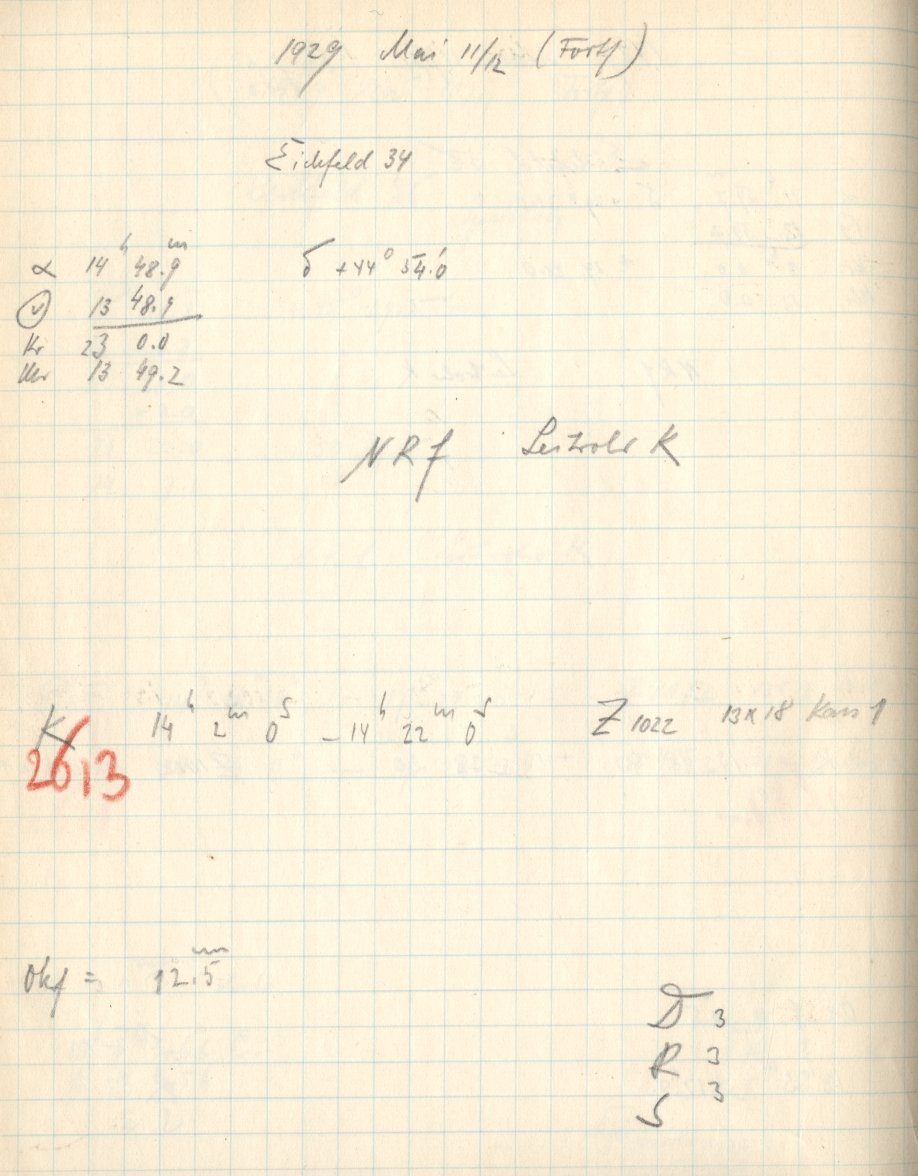 1929 Mai 11/12 (Fortf)
Eichfeld 34
α 14ʰ 48.9ᵐ δ +44° 54.'0
13 48.9
Kr 23 0.0
Uhr 13 49.2
NRf K
K 14ʰ 2ᵐ 0ˢ – 14ʰ 22ᵐ 0ˢ Z 1022 13 x 18 Kass 1
2613
Okf = 12.5ᵐ
D 3
R 3
S 3